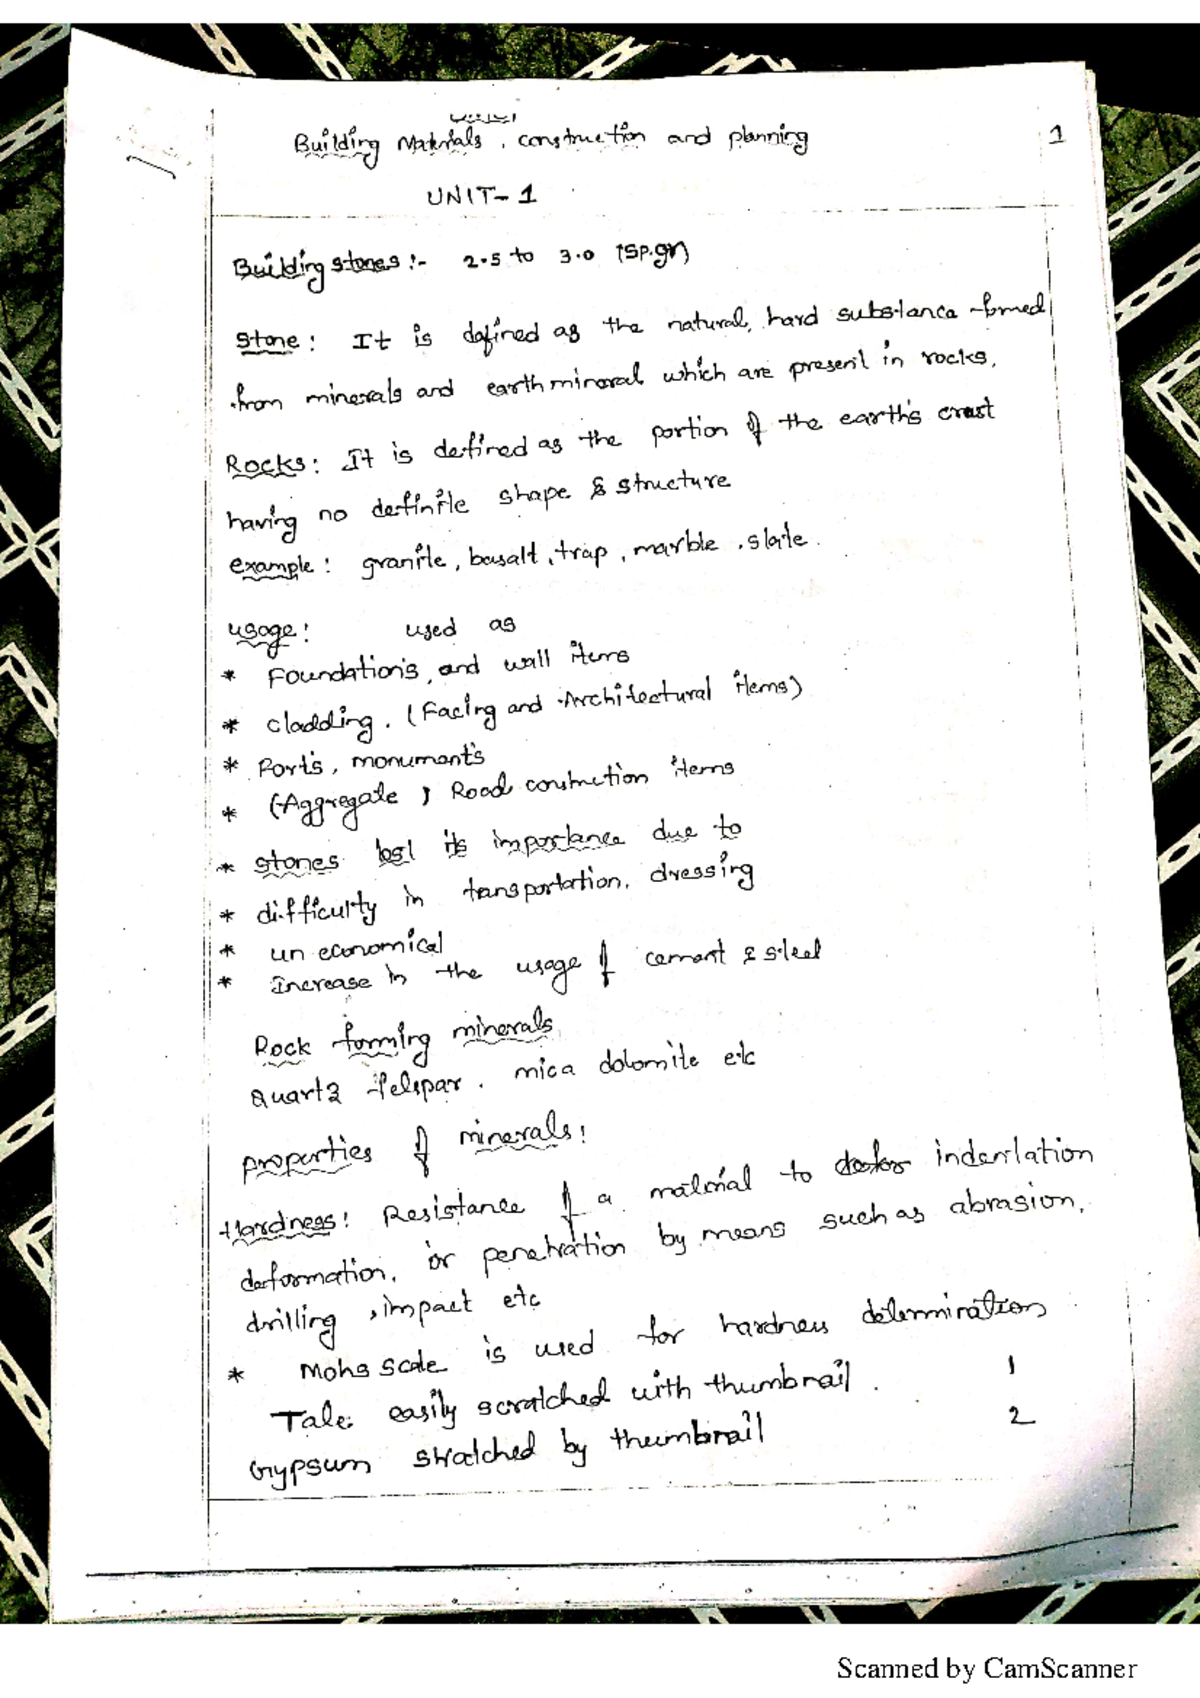 Building Materials, construction and planning
1
UNIT- 1
Building stones :- 2.5 to 3.0 (SP.gr)
Stone : It is defined as the natural, hard substance formed
from minerals and earth mineral which are present in rocks,
Rocks : It is defined as the portion of the earth's crust
having no definite shape & structure
example : granite, basalt, trap, marble, slate.
usage : used as
* Foundation's, and wall items
* cladding. (Facing and Architectural items)
* Port's, monument's
* (Aggregate) Road construction items
* stones lost its importance due to
* difficulty in transportation, dressing
* un economical
* Increase in the usage of cement & steel
Rock forming minerals
Quartz felspar. mica dolomite etc
properties of minerals :
Hardness : Resistance of a material to indentation
deformation, or penetration by means such as abrasion,
drilling, impact etc
* Mohs scale is used for hardness determination
Talc easily scratched with thumbnail. 1
Gypsum scratched by thumbnail 2
Scanned by CamScanner